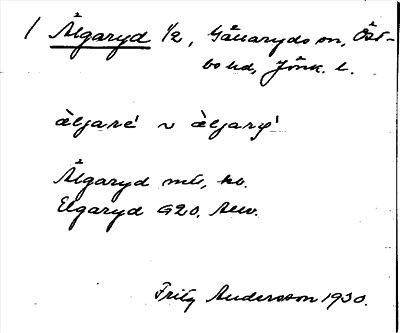 / Ålgaryd 1/2, Gällaryds sn, Öst-
bo hd, Jönk. l.
àljarè ~ àljarỳ
Ålgaryd mtl, kb.
Elgaryd G20, Anv.
Fritz Andersson 1930.